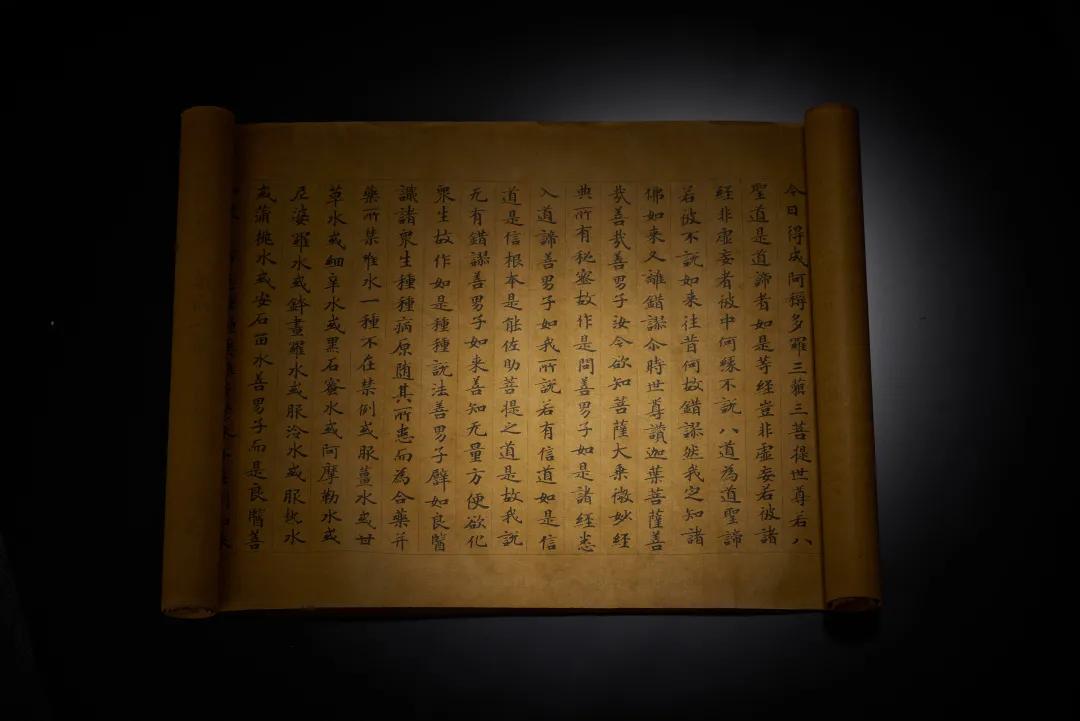 今日得成阿耨多羅三藐三菩提世尊若八
聖道是道諦者如是等經豈非虛妄若彼諸
經非虛妄者彼中何緣不說八道為道聖諦
若彼不說如來往昔何故錯謬然我定知諸
佛如來久離錯謬尒時世尊讚迦葉菩薩善
哉善哉善男子汝今欲知菩薩大乘微妙經
典所有秘密故作是問善男子如是諸經悉
入道諦善男子如我所說若有信道如是信
道是信根本是能佐助菩提之道是故我說
无有錯謬善男子如來善知无量方便欲化
衆生故作如是種種說法善男子譬如良醫
識諸衆生種種病原随其所患而為合藥并
藥所禁唯水一種不在禁例或服薑水或甘
草水或細辛水或黑石蜜水或阿摩勒水或
尼婆羅水或鉢畫羅水或服冷水或服熱水
或蒲桃水或安石留水善男子而是良醫善